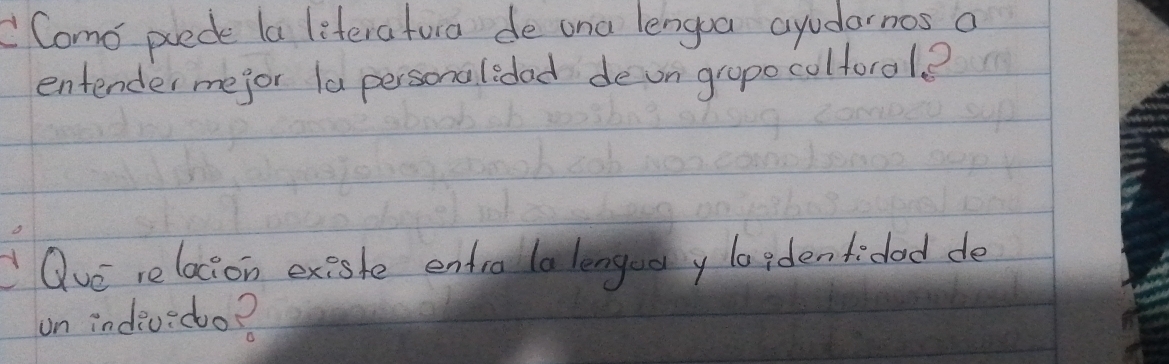 ¿Comó puede la literatura de una lengua ayudarnos a
entender mejor la personalidad de un grupo coltoral?
¿Qué relación existe entra la lengua y la identidad de
un individuo?